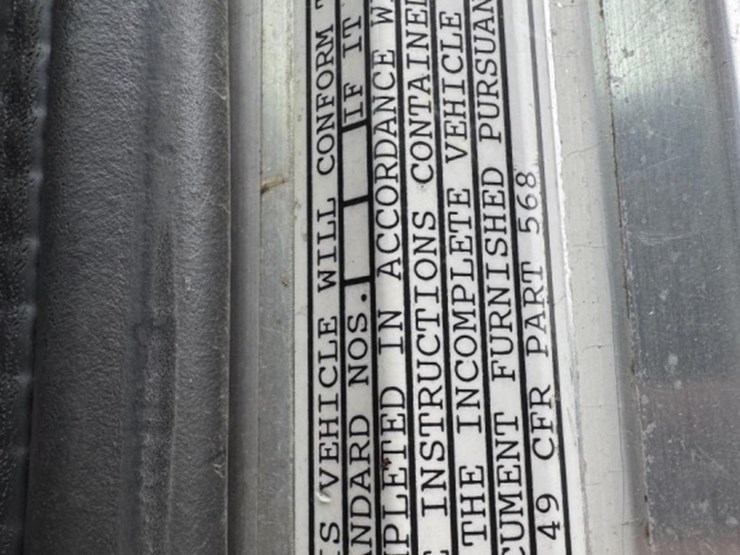 S VEHICLE WILL CONFORM T
NDARD NOS. IF IT
PLETED IN ACCORDANCE W
INSTRUCTIONS CONTAINED
THE INCOMPLETE VEHICLE
CUMENT FURNISHED PURSUAN
49 CFR PART 568